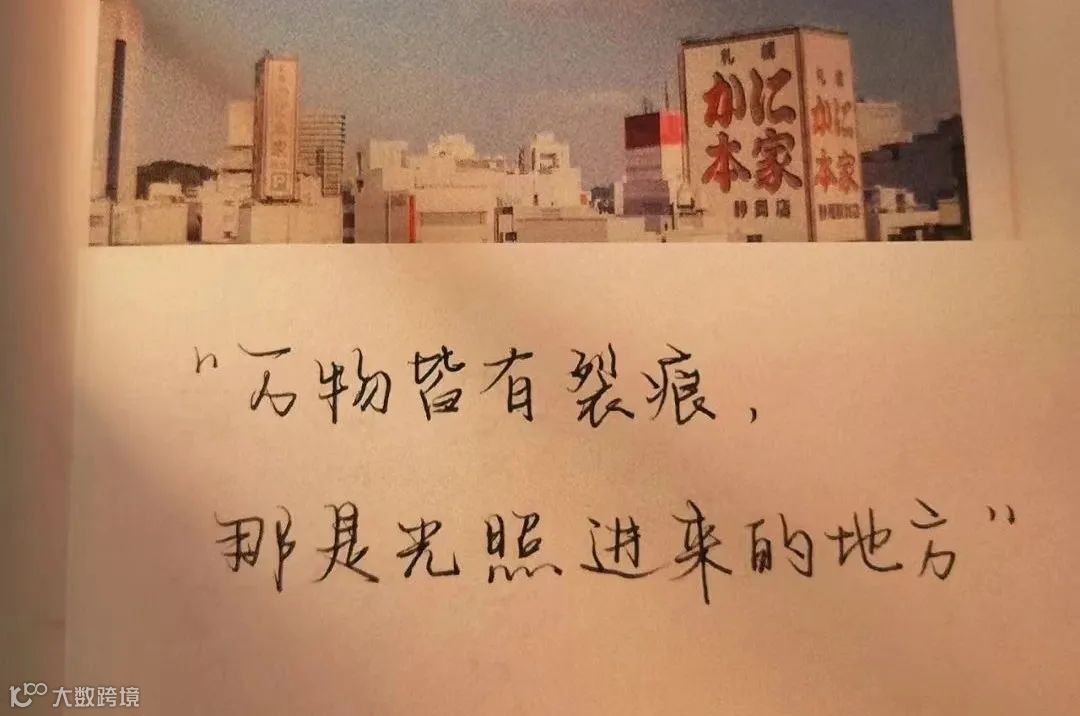 札幌
かに
本家
静岡店
札幌
かに
本家
"万物皆有裂痕，
那是光照进来的地方"
大数跨境